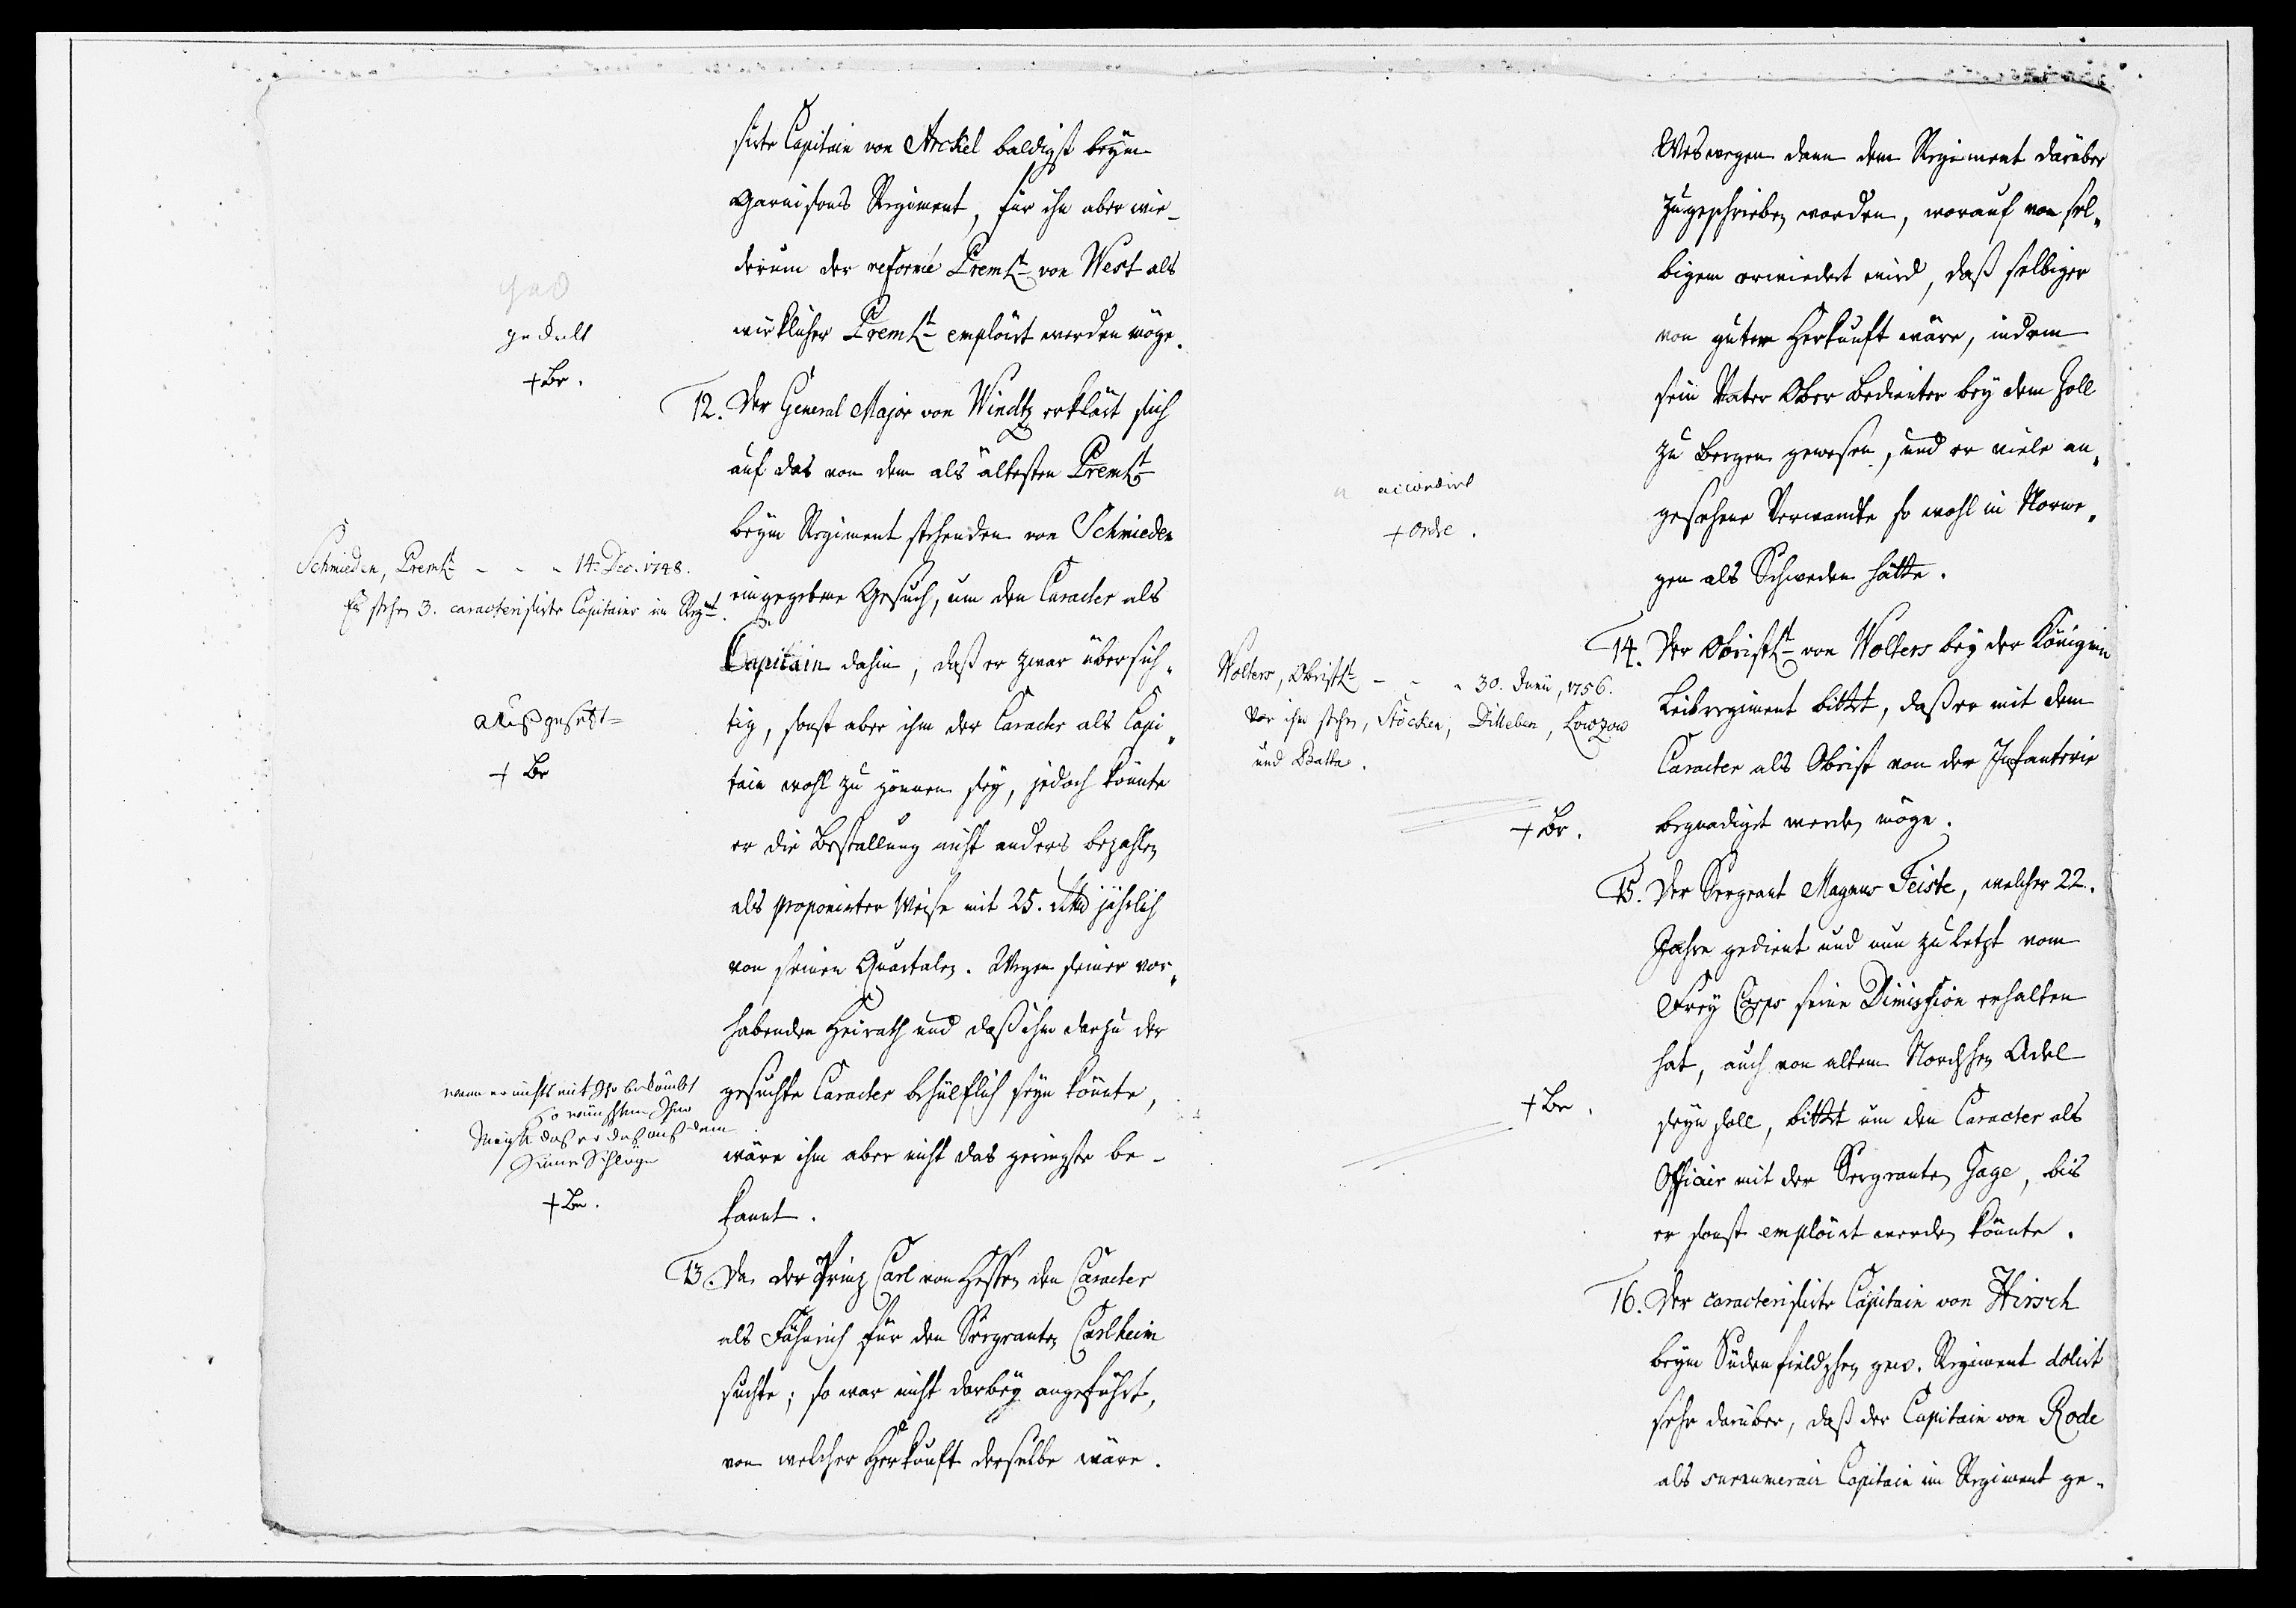 sirte Capitain von Arckel baldigst beym
Garnisons Regiment, für ihn aber wie-
derum der reformé Premlt von West als
würklicher Premlt emploirt werden möge.
gedult
+ Br.
12. Der General Major von Windtz erklärt sich
auf das von dem als ältesten Premlt
beym Regiment stehenden von Schmieden
Schmieden, Premlt - - - 14. Dec. 1748.
Es stehen 3. caracterisirte Capitains im Regt.
eingegebene Gesuch, um den Caracter als
Capitain dahin, daß er zwar übersich-
tig, sonst aber ihm der Caracter als Capi-
außgesetzt
+ Br
tain wohl zu gönnen sey, jedoch könnte
er die Bestallung nicht anders bezahlen
als proponirter Weise mit 25. Rthlr jährlich
von seinen Quartalen. Wegen seiner vor-
habenden Heirath und daß ihm darzu der
gesuchte Caracter behülflich seyn könnte,
wan er nichts mit Ihr bekömbt
so wünschten Ihm
daß er daß auß dem
Sinne Schlüge
+ Br.
wäre ihm aber nicht das geringste be-
kannt.
13. Da der Prinz Carl von Hessen den Caracter
als Fähnrich für den Sergeanten Carlheim
suchte; so war nicht darbey angeführt,
von welcher Herkunft derselbe wäre.
Weswegen dann dem Regiment darüber
zugeschrieben worden, worauf von sel-
bigem erwiedert wird, daß selbiger
von guter Herkunft wäre, indem
sein Vater Ober Bedienter bey dem Zoll
zu Bergen gewesen, und er viele an-
gesehene Verwandte so wohl in Norwe-
gen als Schweden hätte.
accordirt
+ Ordre.
14. Der Obristlt von Wolters bey der Königin
Leibregiment bittet, daß er mit dem
Caracter als Obrist von der Infanterie
begnadiget werden möge.
Wolters, Obristlt - - - 30. Junii, 1756.
Vor ihm stehen, Stöcken, Ditleben, Lowzow
und Batta.
+ Br.
15. Der Sergeant Magnus Feiste, welcher 22.
Jahre gedient und nun zuletzt vom
Frey Corps seine Dimission erhalten
hat, auch von altem Nordschen Adel
seyn soll, bittet um den Caracter als
Officir mit der Sergeanten Gage, bis
er sonst emploirt werden könnte.
+ Br.
16. Der caracterisirte Capitain von Hirsch
beym Südenfieldschen gew. Regiment dolirt
sehr darüber, daß der Capitain von Rode
als surnumerair Capitain im Regiment ge-